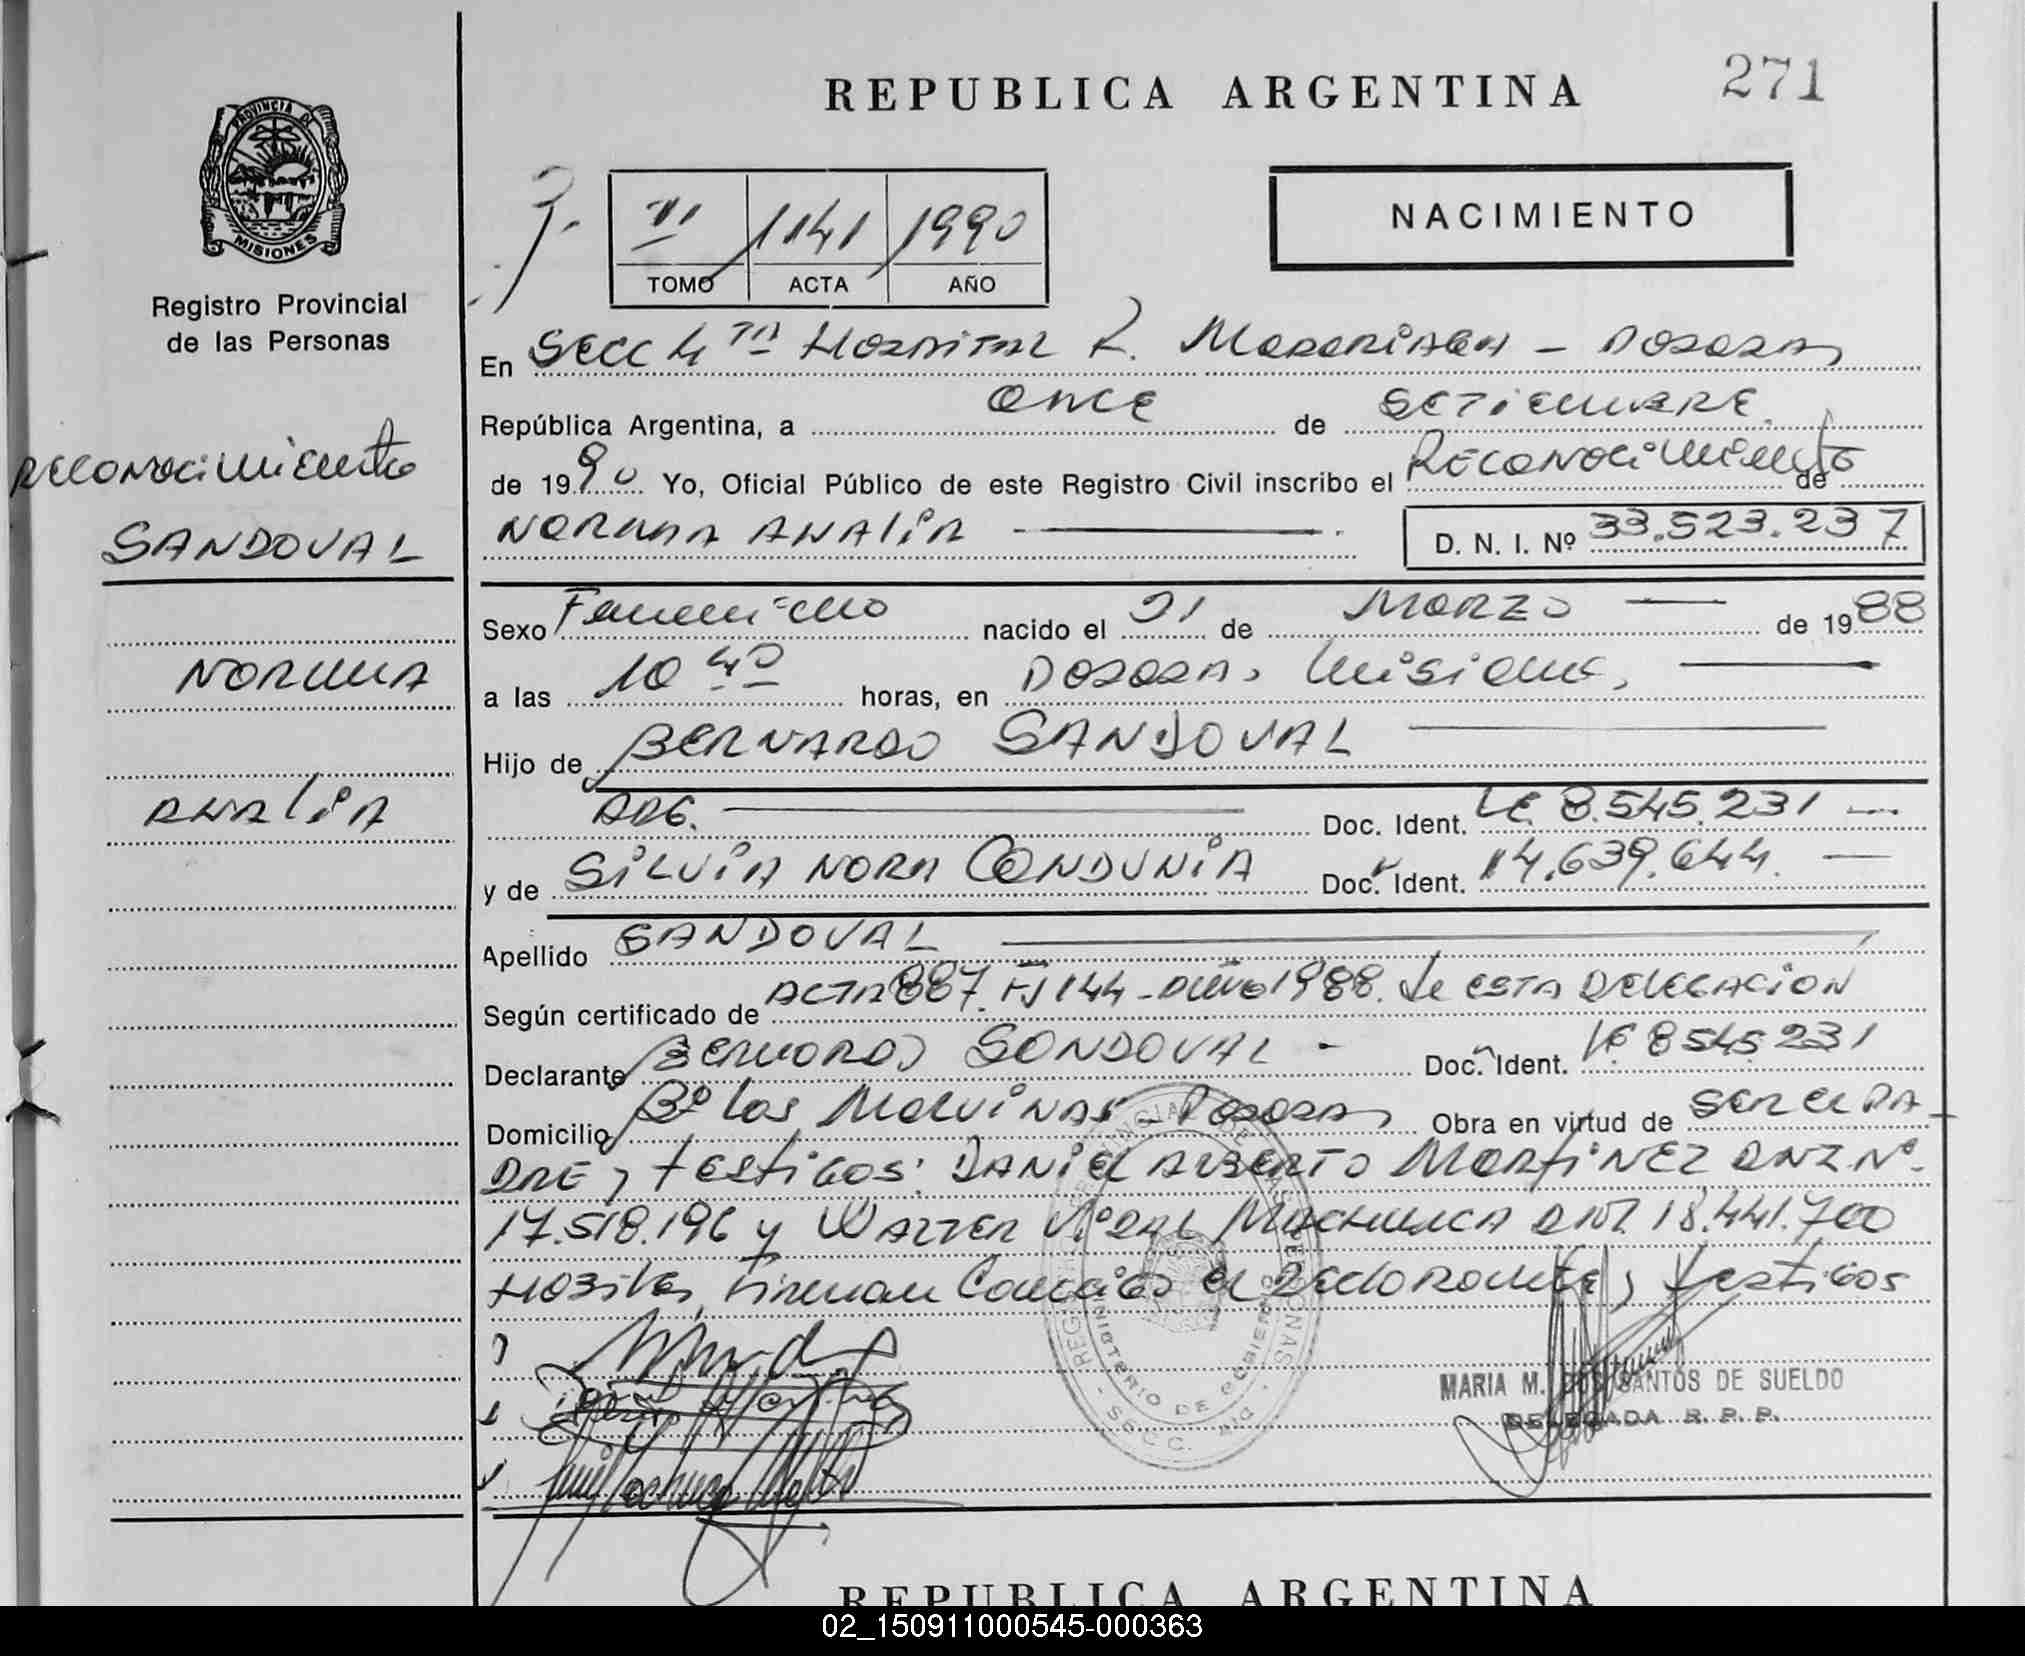 REPUBLICA ARGENTINA
271
PROVINCIA DE
MISIONES
Registro Provincial
de las Personas
VI 1141 1990
TOMO ACTA AÑO
NACIMIENTO
En SECC 4 TA HOSPITAL R. MADARIAGA - POSADAS
República Argentina, a ONCE de SETIEMBRE
de 1990 Yo, Oficial Público de este Registro Civil inscribo el RECONOCIMIENTO de
NORMA ANALIA D. N. I. Nº 33.523.237
RECONOCIMIENTO
SANDOVAL
NORMA
ANALIA
Sexo Femenino nacido el 21 de MARZO de 1988
a las 10 40 horas, en POSADAS, Misiones,
Hijo de BERNARDO SANDOVAL
ARG. Doc. Ident. LE. 8.545.231
y de SILVIA NORA Doc. Ident. 14.639.644.
Apellido SANDOVAL
Según certificado de ACTA 887. Fº 144 - AÑO 1988. de ESTA DELEGACION
Declarante BERNARDO SANDOVAL - Doc. Ident. LE 8545231
Domicilio Bº Las MALVINAS POSADAS Obra en virtud de SER EL PA-
DRE, testigos: DANIEL ALBERTO MARTINEZ DNI. Nº
17.518.196 y WALTER VIDAL MACHUCA DNI. 18.441.700
Firman el Declarante, testigos
MARIA M. DOS SANTOS DE SUELDO
DELEGADA R. P. P.
MINISTERIO DE GOBIERNO
REPUBLICA ARGENTINA
02_150911000545-000363